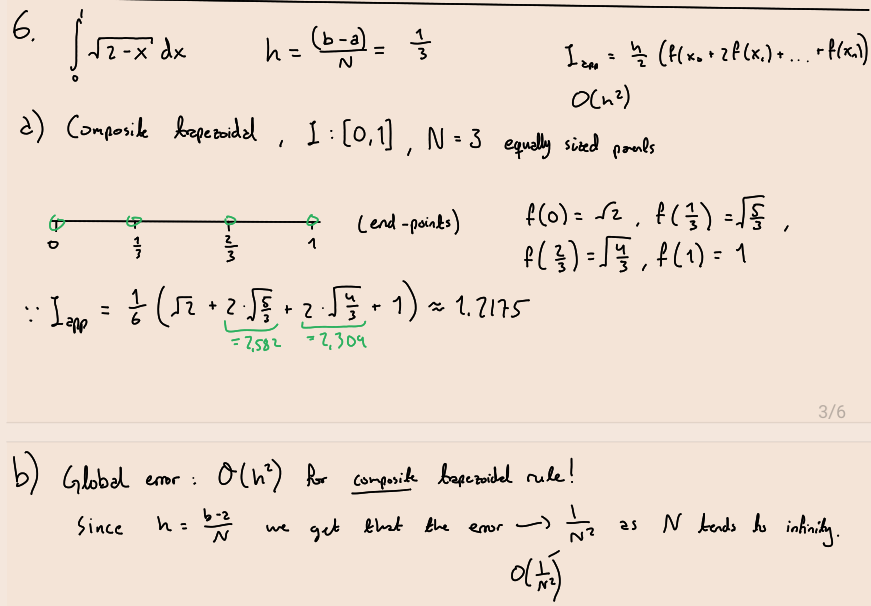 6. ∫₀¹ √(2-x) dx    h = (b-a)/N = 1/3    I_app = h/2 (f(x₀ + 2f(x₁) + ... + f(xₙ))
O(h²)
a) Composite trapezoidal, I : [0,1], N = 3 equally sized panels
0    1/3    2/3    1    (end-points)
f(0) = √2, f(1/3) = √(5/3),
f(2/3) = √(4/3), f(1) = 1
∵ I_app = 1/6 (√2 + 2·√(5/3) + 2·√(4/3) + 1) ≈ 1.2175
=2,582    =2,309
3/6
b) Global error: O(h²) for composite trapezoidal rule!
Since h = (b-a)/N we get that the error → 1/N² as N tends to infinity.
O(1/N²)